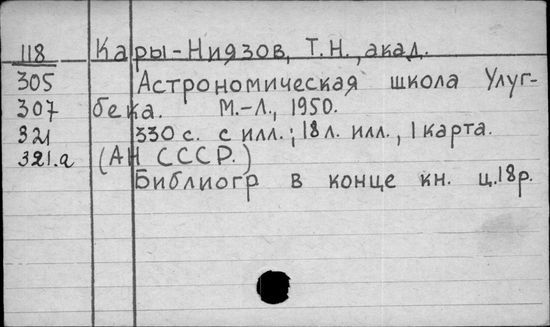 118 Кары-Ниязов, Т.Н., акад.
305 Астрономическая школа Улуг-
307 бека. М.-Л., 1950.
321 330 с. с илл.; 18 л. илл., 1 карта.
321.а (АН СССР.)
Библиогр в конце кн. ц.18р.